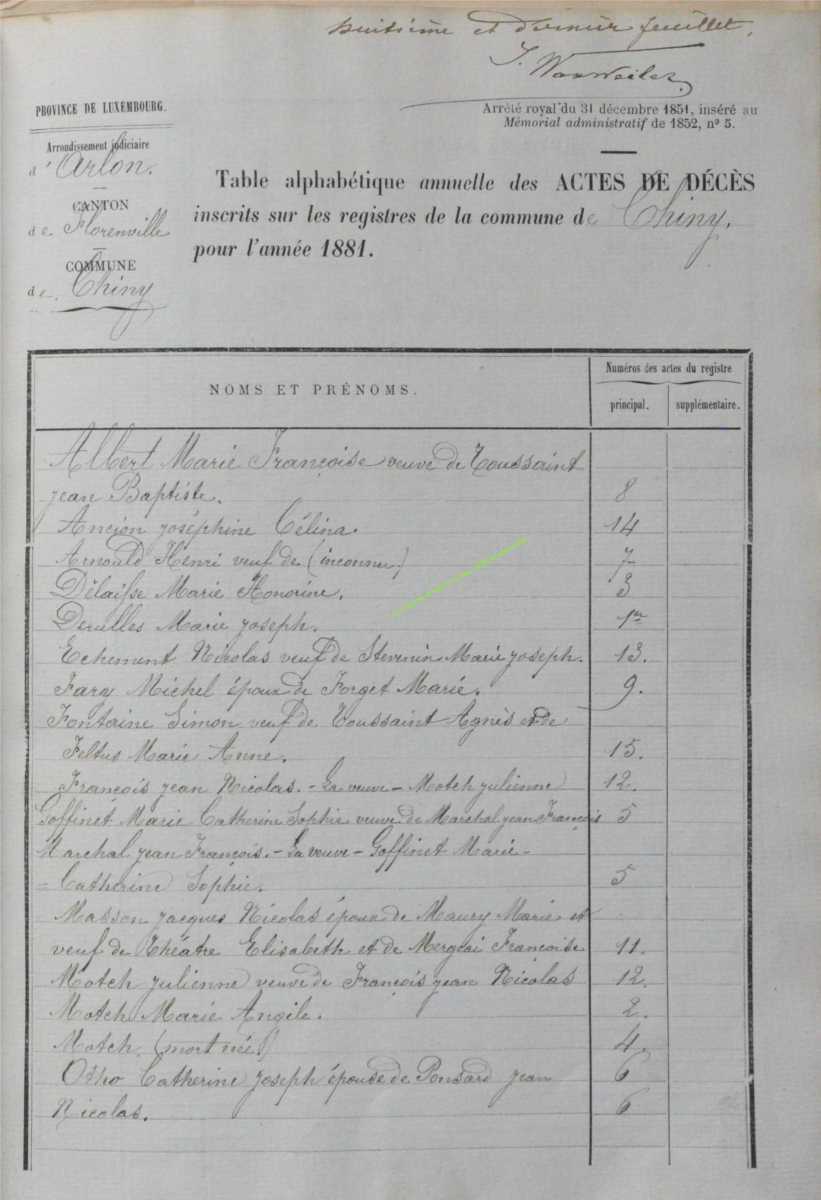 huitième et dernier feuillet.
PROVINCE DE LUXEMBOURG.
Arrêté royal du 31 décembre 1851, inséré au
Mémorial administratif de 1852, n° 5.
Arrondissement judiciaire
d'Arlon.
CANTON
de Florenville
COMMUNE
de Chiny
Table alphabétique annuelle des ACTES DE DÉCÈS
inscrits sur les registres de la commune de Chiny,
pour l'année 1881.
NOMS ET PRÉNOMS.
Numéros des actes du registre
principal. supplémentaire.
Albert Marie Françoise veuve de Toussaint
jean Baptiste. 8
Ancion joséphine Célina. 14
Arnould Henri veuf de (inconnue) 7
Délaisse Marie Honorine. 3
Derulles Marie joseph. 1er
Echement Nicolas veuf de Stevenin Marie joseph. 13.
Michel époux de Forget Marie. 9.
Fontaine Simon veuf de Toussaint Agnès et de
Feltus Marie Anne. 15.
François jean Nicolas. - La veuve - Motch julienne 12.
Goffinet Marie Catherine Sophie veuve de Marchal jean François 5
Marchal jean François. - La veuve - Goffinet Marie-
= Catherine Sophie. 5
Masson jacques Nicolas époux de Maury Marie et
veuf de Théatre Elisabeth et de Mergeai Françoise 11.
Motch julienne veuve de François jean Nicolas 12.
Motch Marie Angile. 2.
Motch (mort né) 4.
Otho Catherine joseph épouse de Ponsard jean 6
Nicolas. 6